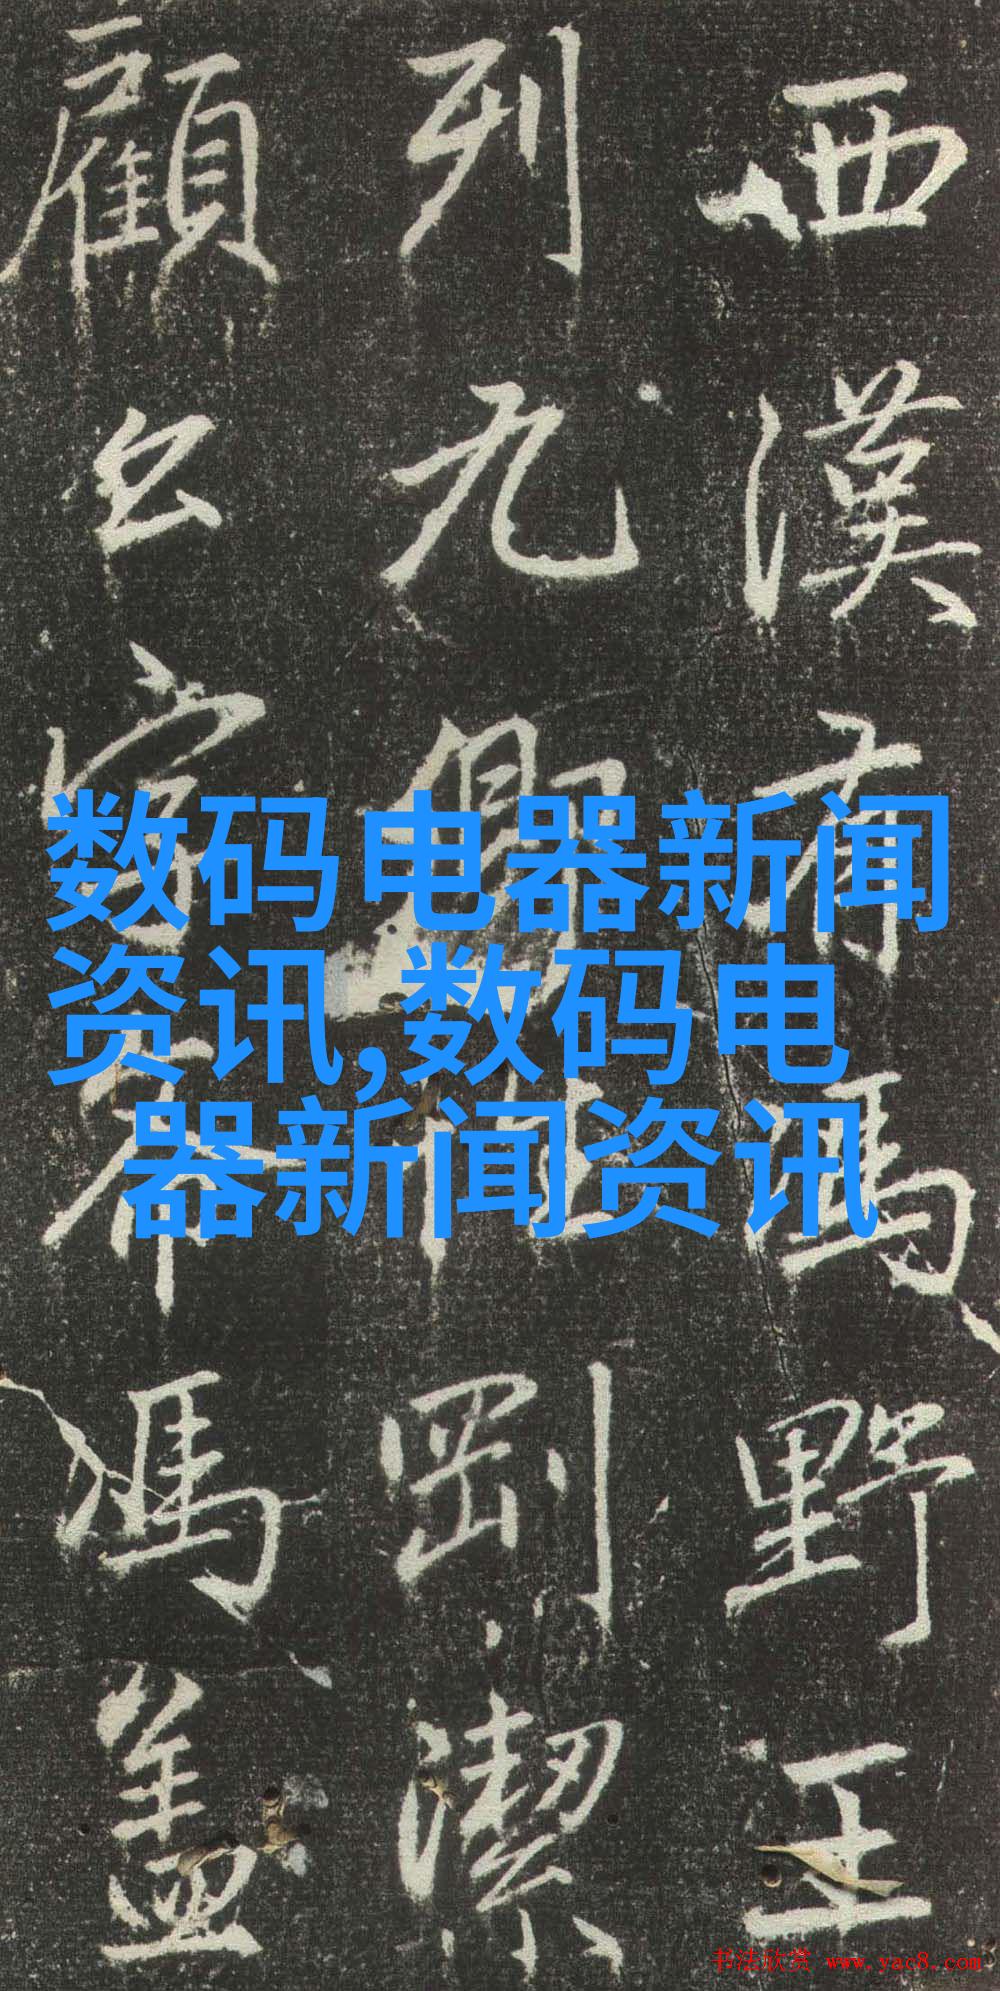 西漢有馮野王
列九剛潔
顧宣帝馮盖
数码电器新闻
资讯,数码电
器新闻资讯
书法欣赏 www.yac8.com